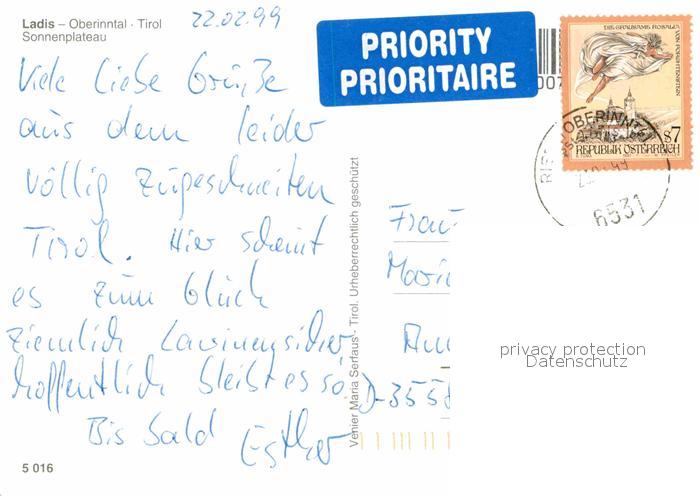 Ladis – Oberinntal · Tirol
Sonnenplateau
22.02.99
PRIORITY
PRIORITAIRE
DIE GRAUSAME ROSALIA
VON FORCHTENSTEIN
S7
REPUBLIK ÖSTERREICH
OBERINNTAL
6531
Viele liebe Grüße
aus dem leider
völlig zugeschneiten
Tirol. Hier scheint
es zum Glück
ziemlich Lawinensicher
hoffentlich bleibt es so.
Bis bald Esther
Frau
D-3558
Venier Maria Serfaus - Tirol. Urheberrechtlich geschützt
privacy protection
Datenschutz
5 016